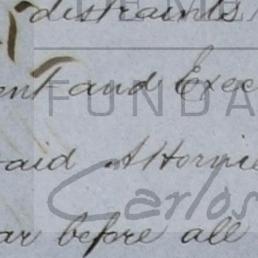 distraints
ent and Exec
aid Attornie
ar before all
FUNDA
Carlos